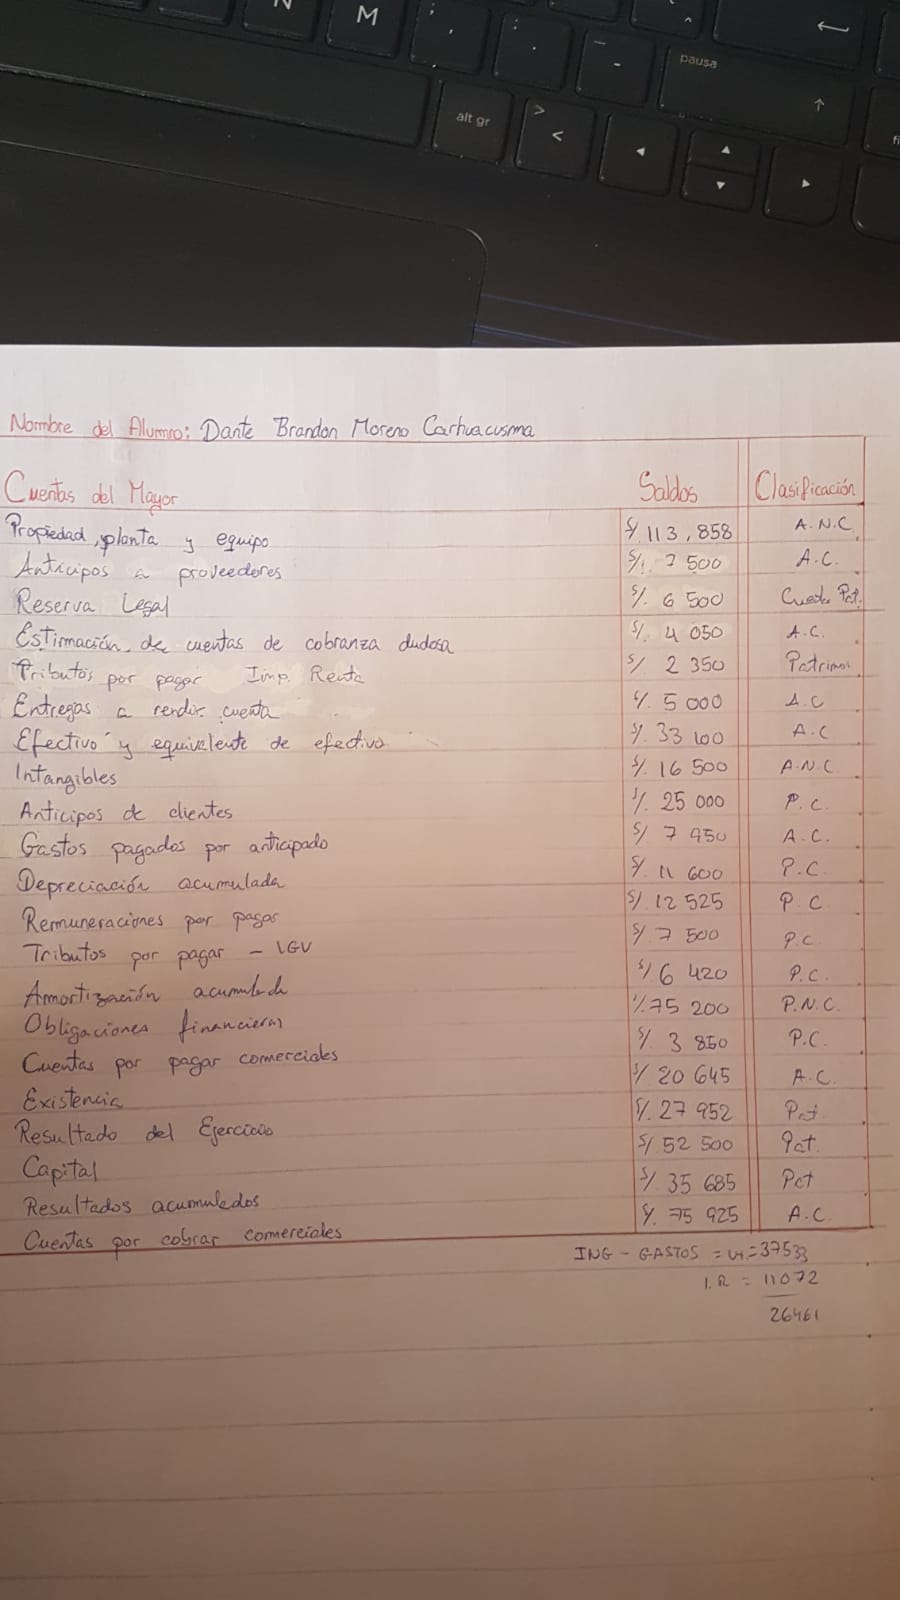 N M ; , : . - pausa
alt gr > <
Nombre del Alumno: Dante Brandon Moreno Carhuacusma
Cuentas del Mayor Saldos Clasificación
Propiedad, planta y equipo S/. 113,858 A.N.C.
Anticipos a proveedores S/. 7 500 A.C.
Reserva Legal S/. 6 500 Pat.
Estimación de cuentas de cobranza dudosa S/. 4 050 A.C.
Tributos por pagar Imp. Renta S/ 2 350 Patrimoi
Entregas a rendir cuenta S/. 5 000 A.C
Efectivo y equivalente de efectivo S/. 33 100 A.C
Intangibles S/. 16 500 A.N.C.
Anticipos de clientes S/. 25 000 P.C.
Gastos pagados por anticipado S/ 7 950 A.C.
Depreciación acumulada S/. 11 600 P.C.
Remuneraciones por pagar S/. 12 525 P.C
Tributos por pagar - IGV S/. 7 500 P.C.
Amortización acumulada S/ 6 420 P.C.
Obligaciones financieras S/. 75 200 P.N.C.
Cuentas por pagar comerciales S/. 3 850 P.C.
Existencia S/ 20 645 A.C.
Resultado del Ejercicio S/. 27 952 Pat.
Capital S/ 52 500 Pat.
Resultados acumulados S/. 35 685 Pat
Cuentas por cobrar comerciales S/. 75 925 A.C.
ING - GASTOS = Ut = 37533
I.R = 11072
26461